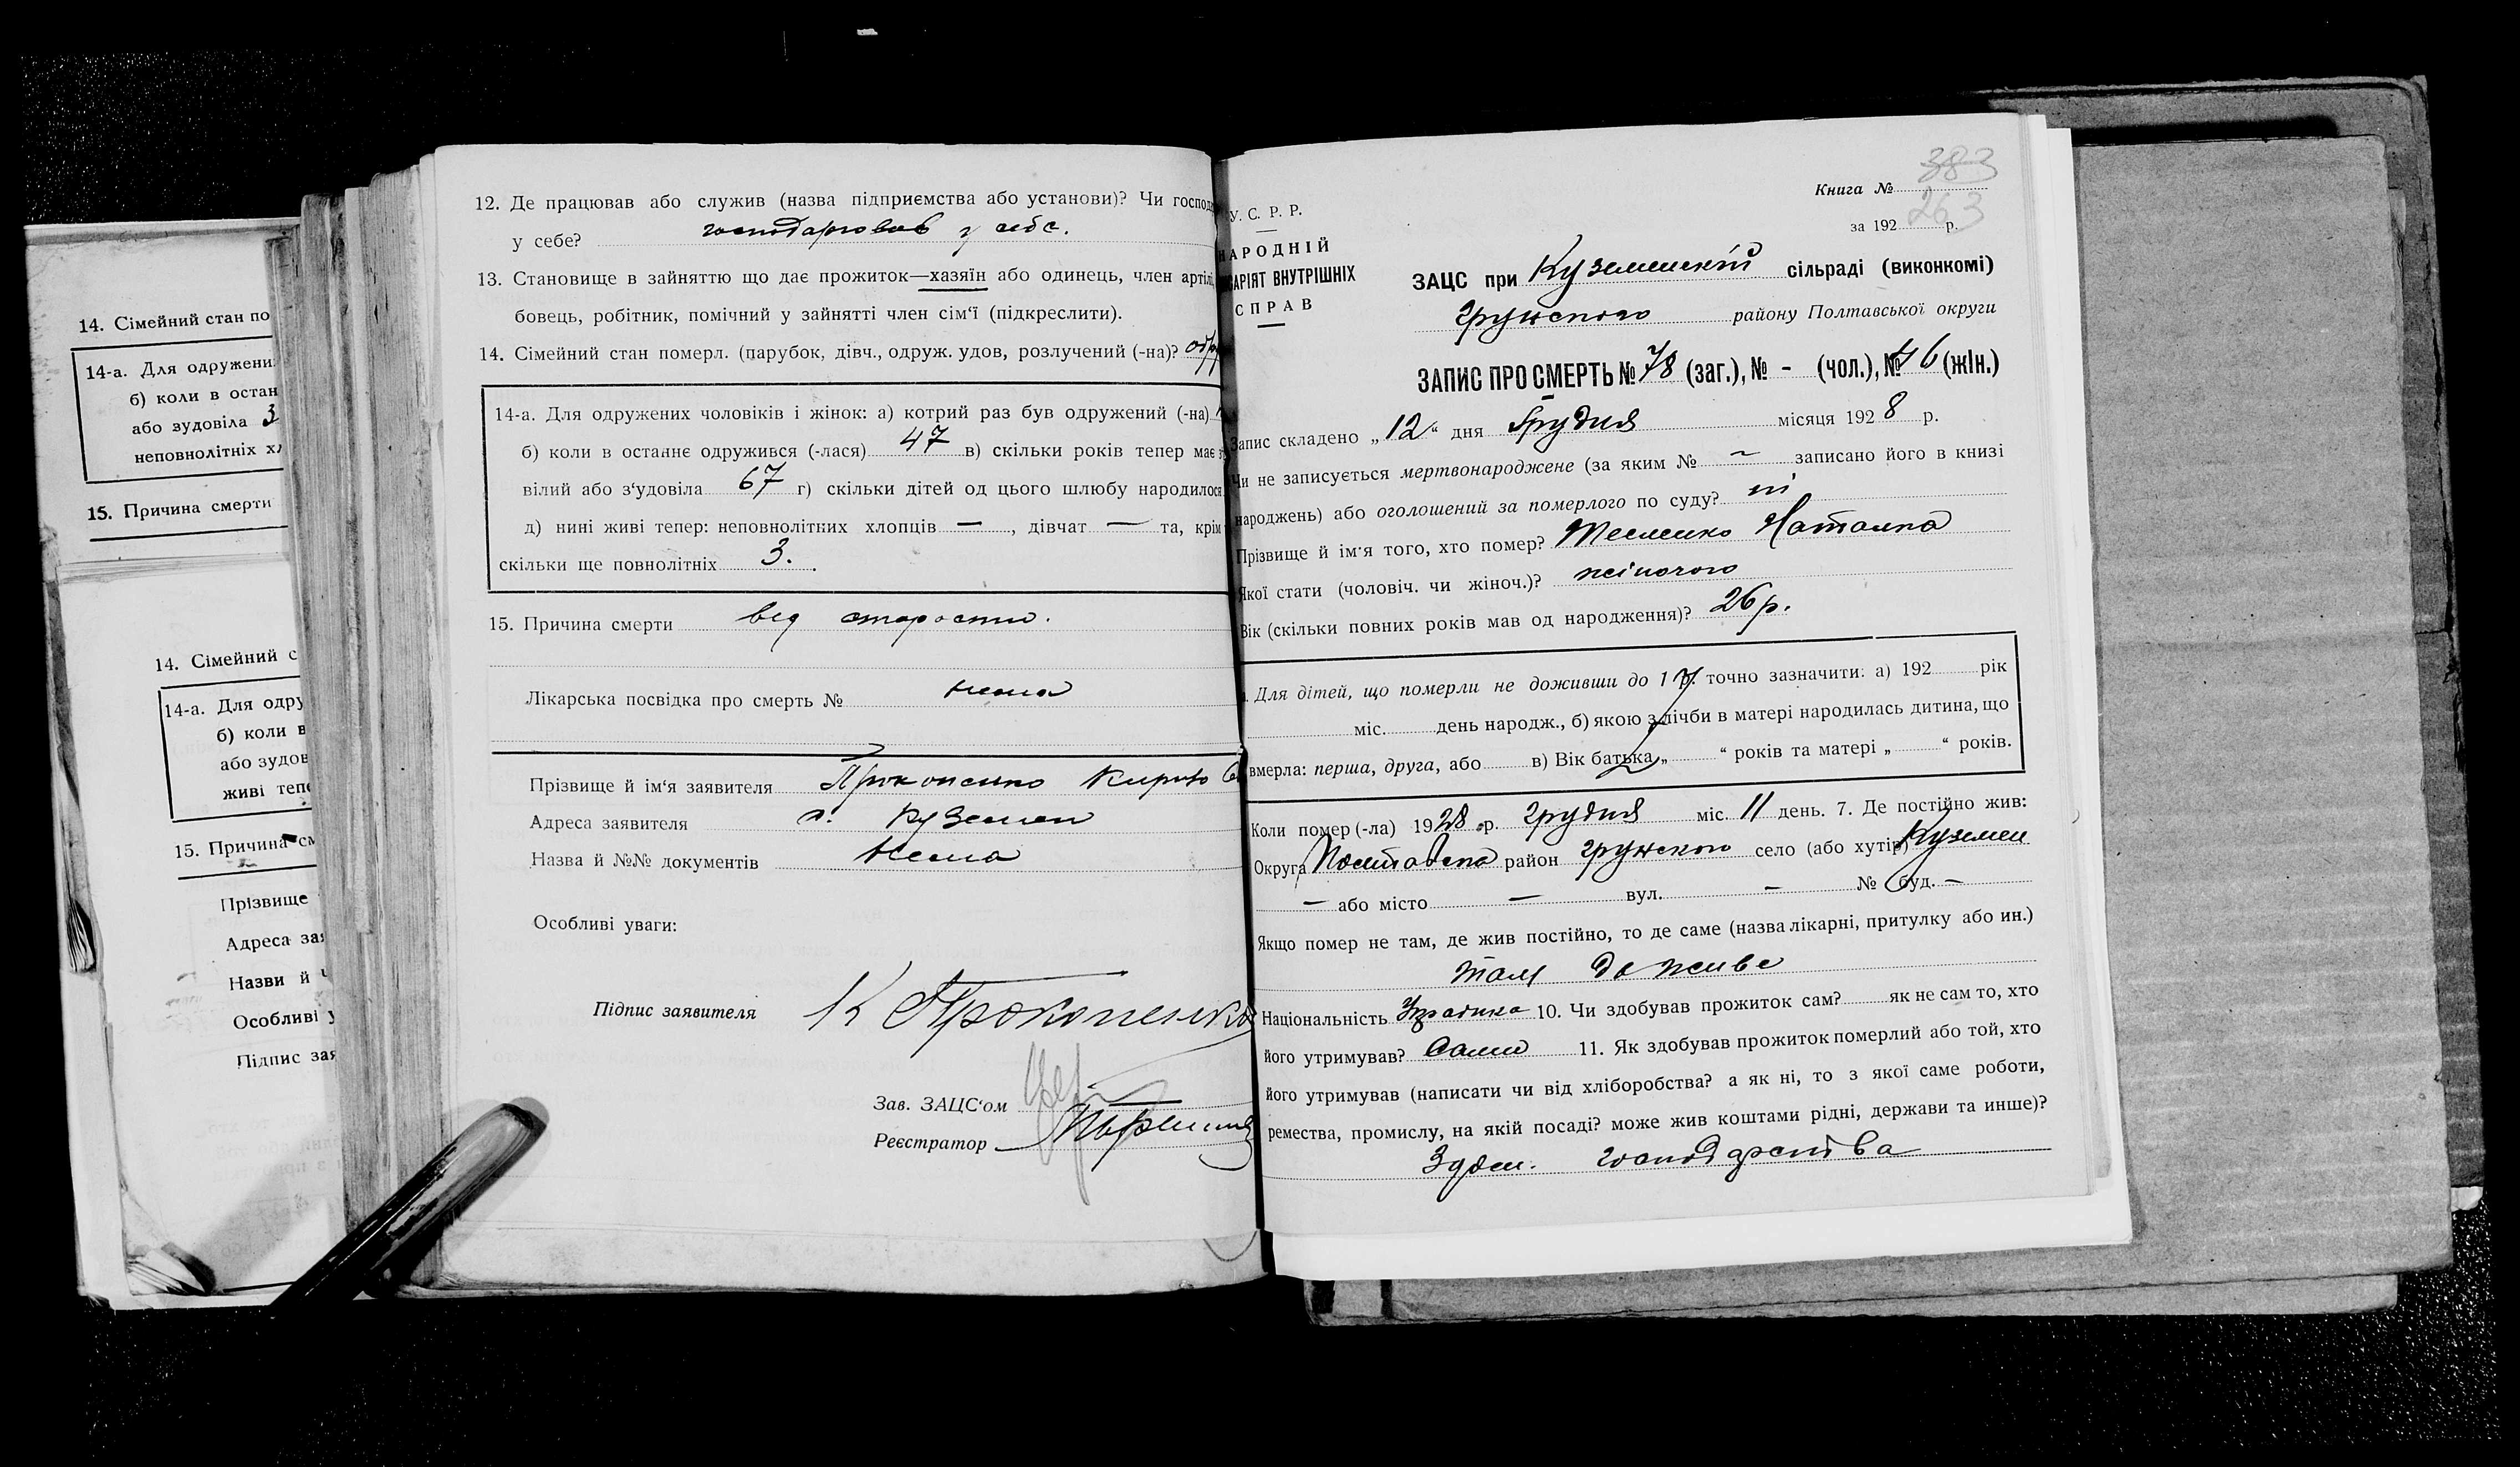 14. Сімейний стан по
14-а. Для одружени
б) коли в остан
або зудовіла 3
неповнолітніх х
15. Причина смерти
14. Сімейний с
14-а. Для одру
б) коли в
або зудов
живі теп
15. Причина см
Прізвище
Адреса зая
Назви й
Особливі у
Підпис зая
12. Де працював або служив (назва підприємства або установи)? Чи господ
у себе? господарював у себе.
13. Становище в зайняттю що дає прожиток—хазяїн або одинець, член артілі,
бовець, робітник, помічний у зайнятті член сім‘ї (підкреслити).
14. Сімейний стан померл. (парубок, дівч., одруж. удов, розлучений (-на)? одр
14-а. Для одружених чоловіків і жінок: а) котрий раз був одружений (-на)
б) коли в останнє одружився (-лася) 47 в) скільки років тепер має з
вілий або з‘удовіла 67 г) скільки дітей од цього шлюбу народилося
д) нині живі тепер: неповнолітних хлопців — , дівчат — та, крім
скільки ще повнолітніх 3.
15. Причина смерти від старости.
Лікарська посвідка про смерть № нема
Прізвище й ім‘я заявителя Прокопенко Кирило
Адреса заявителя с. Куземен
Назва й №№ документів Нема
Особливі уваги:
Підпис заявителя К Прокопенко
Зав. ЗАЦС‘ом
Реєстратор
383
Книга №
263
за 192 р.
У. С. Р. Р.
НАРОДНІЙ
САРІЯТ ВНУТРІШНІХ
СПРАВ
ЗАЦС при Куземенській сільраді (виконкомі)
Грунського району Полтавської округи
ЗАПИС ПРО СМЕРТЬ № 78 (заг.), № - (чол.), № 46 (жін.)
Запис складено „12“ дня Грудня місяця 1928 р.
Чи не записується мертвонароджене (за яким № ~ записано його в книзі
народжень) або оголошений за померлого по суду? ні
Прізвище й ім‘я того, хто помер? Наталка
Якої стати (чоловіч. чи жіноч.)? жіночого
Вік (скільки повних років мав од народження)? 26 р.
Для дітей, що померли не доживши до 1 р. точно зазначити: а) 192 рік
міс. день народж., б) якою з лічби в матері народилась дитина, що
вмерла: перша, друга, або в) Вік батька „ “ років та матері „ “ років.
Коли помер (-ла) 1928 р. грудня міс. 11 день. 7. Де постійно жив:
Округа Полтавська район грунського село (або хутір) Куземен
— або місто — вул. — № буд. —
Якщо помер не там, де жив постійно, то де саме (назва лікарні, притулку або ин.)
там де живе
Національність Українка 10. Чи здобував прожиток сам? як не сам то, хто
його утримував? Сама 11. Як здобував прожиток померлий або той, хто
його утримував (написати чи від хліборобства? а як ні, то з якої саме роботи,
ремества, промислу, на якій посаді? може жив коштами рідні, держави та инше)?
господарства